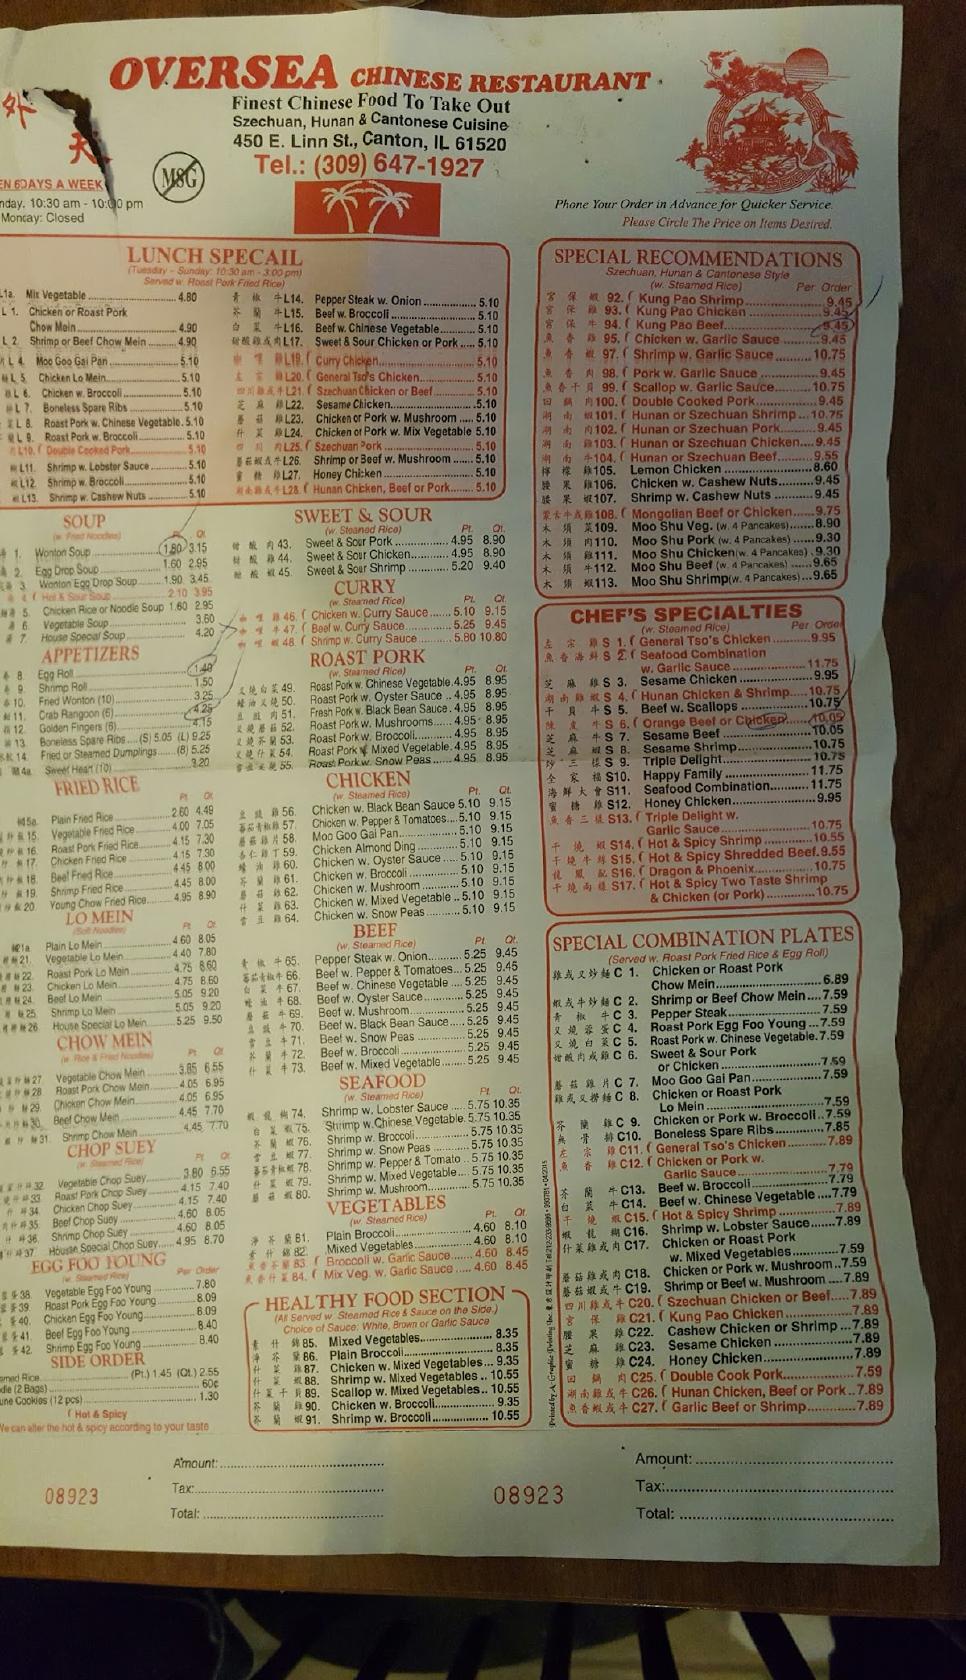 外
天
OVERSEA CHINESE RESTAURANT
Finest Chinese Food To Take Out
Szechuan, Hunan & Cantonese Cuisine
450 E. Linn St., Canton, IL 61520
Tel.: (309) 647-1927
MSG
6DAYS A WEEK
10:30 am - 10:00 pm
Monday: Closed
Phone Your Order in Advance for Quicker Service.
Please Circle The Price on Items Desired.
LUNCH SPECAIL
(Tuesday - Sunday: 10:30 am - 3:00 pm)
Served w. Roast Pork Fried Rice)
L1a. Mix Vegetable 4.80
L 1. Chicken or Roast Pork
Chow Mein 4.90
L 2. Shrimp or Beef Chow Mein 4.90
L 4. Moo Goo Gai Pan 5.10
L 5. Chicken Lo Mein 5.10
L 6. Chicken w. Broccoli 5.10
L 7. Boneless Spare Ribs 5.10
L 8. Roast Pork w. Chinese Vegetable 5.10
L 9. Roast Pork w. Broccoli 5.10
L10. Double Cooked Pork 5.10
L11. Shrimp w. Lobster Sauce 5.10
L12. Shrimp w. Broccoli 5.10
L13. Shrimp w. Cashew Nuts 5.10
青椒牛 L14. Pepper Steak w. Onion 5.10
芥蘭牛 L15. Beef w. Broccoli 5.10
白菜牛 L16. Beef w. Chinese Vegetable 5.10
甜酸雞肉 L17. Sweet & Sour Chicken or Pork 5.10
咖喱雞 L19. Curry Chicken 5.10
左宗雞 L20. General Tso's Chicken 5.10
四川雞或牛 L21. Szechuan Chicken or Beef 5.10
芝麻雞 L22. Sesame Chicken 5.10
L23. Chicken or Pork w. Mushroom 5.10
L24. Chicken or Pork w. Mix Vegetable 5.10
四川肉 L25. Szechuan Pork 5.10
蘑菇蝦或牛 L26. Shrimp or Beef w. Mushroom 5.10
蜜糖雞 L27. Honey Chicken 5.10
湖南雞或牛 L28. Hunan Chicken, Beef or Pork 5.10
SOUP
(w. Fried Noodles)
Pt. Qt.
1. Wonton Soup 1.80 3.15
2. Egg Drop Soup 1.60 2.95
3. Wonton Egg Drop Soup 1.90 3.45
4. Hot & Sour Soup 2.10 3.95
5. Chicken Rice or Noodle Soup 1.60 2.95
6. Vegetable Soup 3.60
7. House Special Soup 4.20
APPETIZERS
8. Egg Roll 1.40
9. Shrimp Roll 1.50
10. Fried Wonton (10) 3.25
11. Crab Rangoon (6) 4.25
12. Golden Fingers (6) 4.15
13. Boneless Spare Ribs (S) 5.05 (L) 9.25
14. Fried or Steamed Dumplings (8) 5.25
Sweet Heart (10) 3.20
FRIED RICE
Pt. Qt.
Plain Fried Rice 2.60 4.49
15. Vegetable Fried Rice 4.00 7.05
16. Roast Pork Fried Rice 4.15 7.30
17. Chicken Fried Rice 4.15 7.30
18. Beef Fried Rice 4.45 8.00
19. Shrimp Fried Rice 4.45 8.00
20. Young Chow Fried Rice 4.95 8.90
LO MEIN
(Soft Noodles)
Pt. Qt.
21a Plain Lo Mein 4.60 8.05
21. Vegetable Lo Mein 4.40 7.80
22. Roast Pork Lo Mein 4.75 8.60
23. Chicken Lo Mein 4.75 8.60
24. Beef Lo Mein 5.05 9.20
25. Shrimp Lo Mein 5.05 9.20
26. House Special Lo Mein 5.25 9.50
CHOW MEIN
(w. Rice & Fried Noodles)
Pt. Qt.
27. Vegetable Chow Mein 3.85 6.55
28. Roast Pork Chow Mein 4.05 6.95
29. Chicken Chow Mein 4.05 6.95
30. Beef Chow Mein 4.45 7.70
31. Shrimp Chow Mein 4.45 7.70
CHOP SUEY
(w. Steamed Rice)
Pt. Qt.
32 Vegetable Chop Suey 3.80 6.55
33. Roast Pork Chop Suey 4.15 7.40
34. Chicken Chop Suey 4.15 7.40
35. Beef Chop Suey 4.60 8.05
36. Shrimp Chop Suey 4.60 8.05
37. House Special Chop Suey 4.95 8.70
EGG FOO YOUNG
(w. Steamed Rice)
Per Order
38. Vegetable Egg Foo Young 7.80
39. Roast Pork Egg Foo Young 8.09
40. Chicken Egg Foo Young 8.09
41. Beef Egg Foo Young 8.40
42. Shrimp Egg Foo Young 8.40
SIDE ORDER
Rice (Pt.) 1.45 (Qt.) 2.55
(2 Bags) 60¢
Cookies (12 pcs) 1.30
Hot & Spicy
We can alter the hot & spicy according to your taste
SWEET & SOUR
(w. Steamed Rice)
Pt. Qt.
甜酸肉 43. Sweet & Sour Pork 4.95 8.90
甜酸雞 44. Sweet & Sour Chicken 4.95 8.90
甜酸蝦 45. Sweet & Sour Shrimp 5.20 9.40
CURRY
(w. Steamed Rice)
Pt. Qt.
咖喱雞 46. Chicken w. Curry Sauce 5.10 9.15
咖喱牛 47. Beef w. Curry Sauce 5.25 9.45
咖喱蝦 48. Shrimp w. Curry Sauce 5.80 10.80
ROAST PORK
(w. Steamed Rice)
Pt. Qt.
叉燒白菜 49. Roast Pork w. Chinese Vegetable 4.95 8.95
蠔油叉燒 50. Roast Pork w. Oyster Sauce 4.95 8.95
豆豉肉 51. Fresh Pork w. Black Bean Sauce 4.95 8.95
叉燒蘑菇 52. Roast Pork w. Mushrooms 4.95 8.95
叉燒芥蘭 53. Roast Pork w. Broccoli 4.95 8.95
叉燒什菜 54. Roast Pork w. Mixed Vegetable 4.95 8.95
55. Roast Pork w. Snow Peas 4.95 8.95
CHICKEN
(w. Steamed Rice)
Pt. Qt.
豆豉雞 56. Chicken w. Black Bean Sauce 5.10 9.15
蕃茄青椒雞 57. Chicken w. Pepper & Tomatoes 5.10 9.15
蘑菇雞片 58. Moo Goo Gai Pan 5.10 9.15
杏仁雞丁 59. Chicken Almond Ding 5.10 9.15
蠔油雞 60. Chicken w. Oyster Sauce 5.10 9.15
芥蘭雞 61. Chicken w. Broccoli 5.10 9.15
蘑菇雞 62. Chicken w. Mushroom 5.10 9.15
什菜雞 63. Chicken w. Mixed Vegetable 5.10 9.15
雪豆雞 64. Chicken w. Snow Peas 5.10 9.15
BEEF
(w. Steamed Rice)
Pt. Qt.
青椒牛 65. Pepper Steak w. Onion 5.25 9.45
蕃茄青椒牛 66. Beef w. Pepper & Tomatoes 5.25 9.45
白菜牛 67. Beef w. Chinese Vegetable 5.25 9.45
蠔油牛 68. Beef w. Oyster Sauce 5.25 9.45
蘑菇牛 69. Beef w. Mushroom 5.25 9.45
豆豉牛 70. Beef w. Black Bean Sauce 5.25 9.45
雪豆牛 71. Beef w. Snow Peas 5.25 9.45
芥蘭牛 72. Beef w. Broccoli 5.25 9.45
什菜牛 73. Beef w. Mixed Vegetable 5.25 9.45
SEAFOOD
(w. Steamed Rice)
Pt. Qt.
蝦龍糊 74. Shrimp w. Lobster Sauce 5.75 10.35
白菜蝦 75. Shrimp w. Chinese Vegetable 5.75 10.35
芥蘭蝦 76. Shrimp w. Broccoli 5.75 10.35
雪豆蝦 77. Shrimp w. Snow Peas 5.75 10.35
蕃茄青椒蝦 78. Shrimp w. Pepper & Tomato 5.75 10.35
什菜蝦 79. Shrimp w. Mixed Vegetable 5.75 10.35
蘑菇蝦 80. Shrimp w. Mushroom 5.75 10.35
VEGETABLES
(w. Steamed Rice)
Pt. Qt.
淨芥蘭 81. Plain Broccoli 4.60 8.10
素什錦 82. Mixed Vegetables 4.60 8.10
魚香芥蘭 83. Broccoli w. Garlic Sauce 4.60 8.45
魚香什菜 84. Mix Veg. w. Garlic Sauce 4.60 8.45
HEALTHY FOOD SECTION
(All Served w. Steamed Rice & Sauce on the Side.)
Choice of Sauce: White, Brown or Garlic Sauce
素什錦 85. Mixed Vegetables 8.35
淨芥蘭 86. Plain Broccoli 8.35
什菜雞 87. Chicken w. Mixed Vegetables 9.35
什菜蝦 88. Shrimp w. Mixed Vegetables 10.55
什菜干貝 89. Scallop w. Mixed Vegetables 10.55
芥蘭雞 90. Chicken w. Broccoli 9.35
芥蘭蝦 91. Shrimp w. Broccoli 10.55
SPECIAL RECOMMENDATIONS
Szechuan, Hunan & Cantonese Style
(w. Steamed Rice)
Per Order
宮保蝦 92. Kung Pao Shrimp 9.45
宮保雞 93. Kung Pao Chicken 9.45
宮保牛 94. Kung Pao Beef 9.45
魚香雞 95. Chicken w. Garlic Sauce 9.45
魚香蝦 97. Shrimp w. Garlic Sauce 10.75
魚香肉 98. Pork w. Garlic Sauce 9.45
魚香干貝 99. Scallop w. Garlic Sauce 10.75
回鍋肉 100. Double Cooked Pork 9.45
湖南蝦 101. Hunan or Szechuan Shrimp 10.75
湖南肉 102. Hunan or Szechuan Pork 9.45
湖南雞 103. Hunan or Szechuan Chicken 9.45
湖南牛 104. Hunan or Szechuan Beef 9.55
檸檬雞 105. Lemon Chicken 8.60
腰果雞 106. Chicken w. Cashew Nuts 9.45
腰果蝦 107. Shrimp w. Cashew Nuts 9.45
蒙古牛或雞 108. Mongolian Beef or Chicken 9.75
木須菜 109. Moo Shu Veg. (w. 4 Pancakes) 8.90
木須肉 110. Moo Shu Pork (w. 4 Pancakes) 9.30
木須雞 111. Moo Shu Chicken (w. 4 Pancakes) 9.30
木須牛 112. Moo Shu Beef (w. 4 Pancakes) 9.65
木須蝦 113. Moo Shu Shrimp (w. 4 Pancakes) 9.65
CHEF'S SPECIALTIES
(w. Steamed Rice)
Per Order
左宗雞 S 1. General Tso's Chicken 9.95
魚香海鮮 S 2. Seafood Combination
w. Garlic Sauce 11.75
芝麻雞 S 3. Sesame Chicken 9.95
湖南雞蝦 S 4. Hunan Chicken & Shrimp 10.75
干貝牛 S 5. Beef w. Scallops 10.75
陳皮牛 S 6. Orange Beef or Chicken 10.05
芝麻牛 S 7. Sesame Beef 10.05
芝麻蝦 S 8. Sesame Shrimp 10.75
炒三樣 S 9. Triple Delight 10.75
全家福 S10. Happy Family 11.75
海鮮大會 S11. Seafood Combination 11.75
蜜糖雞 S12. Honey Chicken 9.95
魚香三樣 S13. Triple Delight w.
Garlic Sauce 10.75
干燒蝦 S14. Hot & Spicy Shrimp 10.55
干燒牛絲 S15. Hot & Spicy Shredded Beef 9.55
龍鳳配 S16. Dragon & Phoenix 10.75
干燒兩樣 S17. Hot & Spicy Two Taste Shrimp
& Chicken (or Pork) 10.75
SPECIAL COMBINATION PLATES
(Served w. Roast Pork Fried Rice & Egg Roll)
雞或叉炒麵 C 1. Chicken or Roast Pork
Chow Mein 6.89
蝦或牛炒麵 C 2. Shrimp or Beef Chow Mein 7.59
青椒牛 C 3. Pepper Steak 7.59
叉燒蓉蛋 C 4. Roast Pork Egg Foo Young 7.59
叉燒白菜 C 5. Roast Pork w. Chinese Vegetable 7.59
甜酸肉或雞 C 6. Sweet & Sour Pork
or Chicken 7.59
蘑菇雞片 C 7. Moo Goo Gai Pan 7.59
雞或叉撈麵 C 8. Chicken or Roast Pork
Lo Mein 7.59
芥蘭雞 C 9. Chicken or Pork w. Broccoli 7.59
無骨排 C10. Boneless Spare Ribs 7.85
左宗雞 C11. General Tso's Chicken 7.89
魚香雞 C12. Chicken or Pork w.
Garlic Sauce 7.79
芥蘭牛 C13. Beef w. Broccoli 7.79
白菜牛 C14. Beef w. Chinese Vegetable 7.79
干燒蝦 C15. Hot & Spicy Shrimp 7.89
蝦龍糊 C16. Shrimp w. Lobster Sauce 7.89
什菜雞或肉 C17. Chicken or Roast Pork
w. Mixed Vegetables 7.59
蘑菇雞或肉 C18. Chicken or Pork w. Mushroom 7.59
蘑菇蝦或牛 C19. Shrimp or Beef w. Mushroom 7.89
四川雞或牛 C20. Szechuan Chicken or Beef 7.89
宮保雞 C21. Kung Pao Chicken 7.89
腰果雞 C22. Cashew Chicken or Shrimp 7.89
芝麻雞 C23. Sesame Chicken 7.89
蜜糖雞 C24. Honey Chicken 7.89
回鍋肉 C25. Double Cook Pork 7.59
湖南雞或牛 C26. Hunan Chicken, Beef or Pork 7.89
魚香蝦或牛 C27. Garlic Beef or Shrimp 7.89
Amount:
Tax:
Total:
08923
08923
Amount:
Tax:
Total: